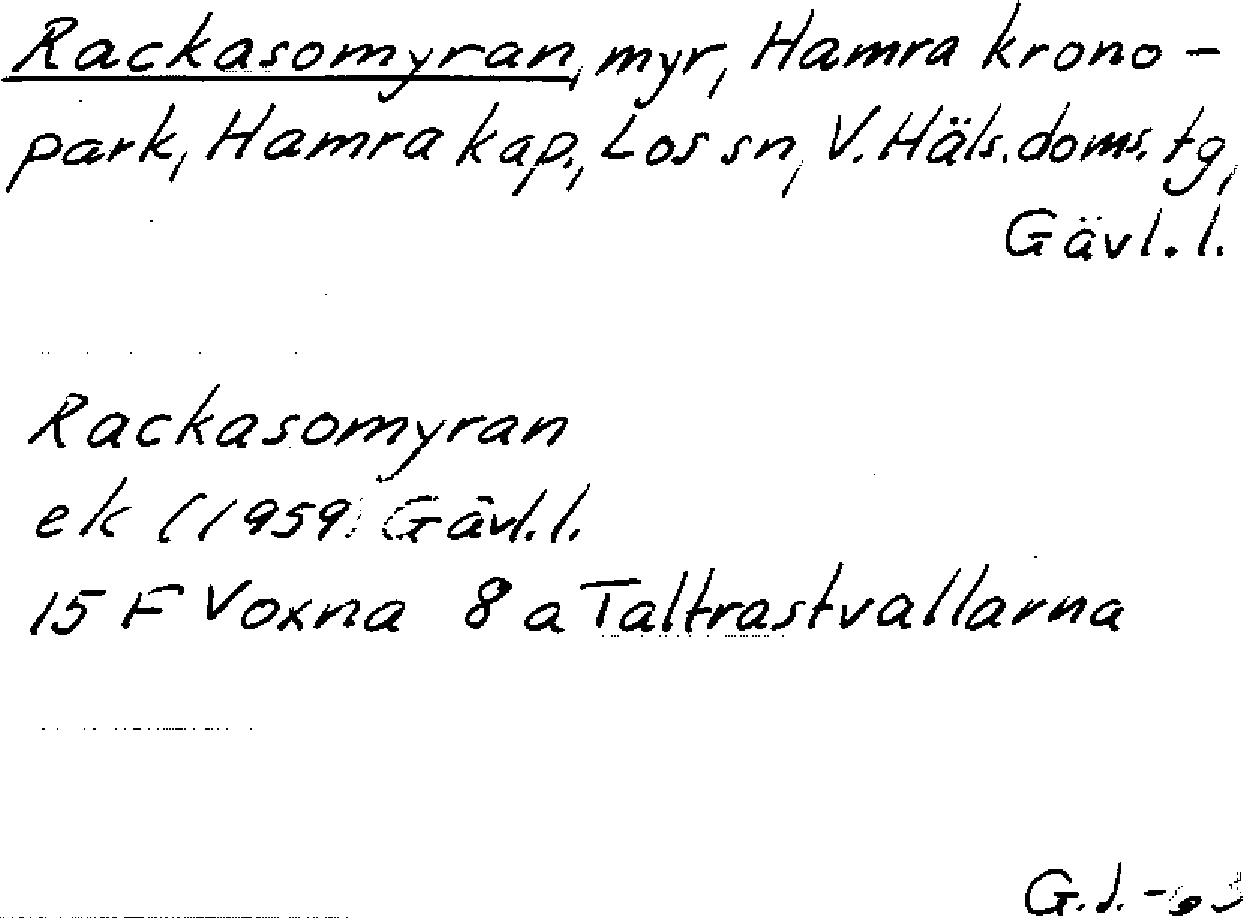 Rackasomyran, myr, Hamra krono-
park, Hamra kap., Los sn, V. Häls. doms. tg,
Gävl. l.
Rackasomyran
ek (1959) Gävl. l.
15 F Voxna 8 a Taltrastvallarna
G.J. -63